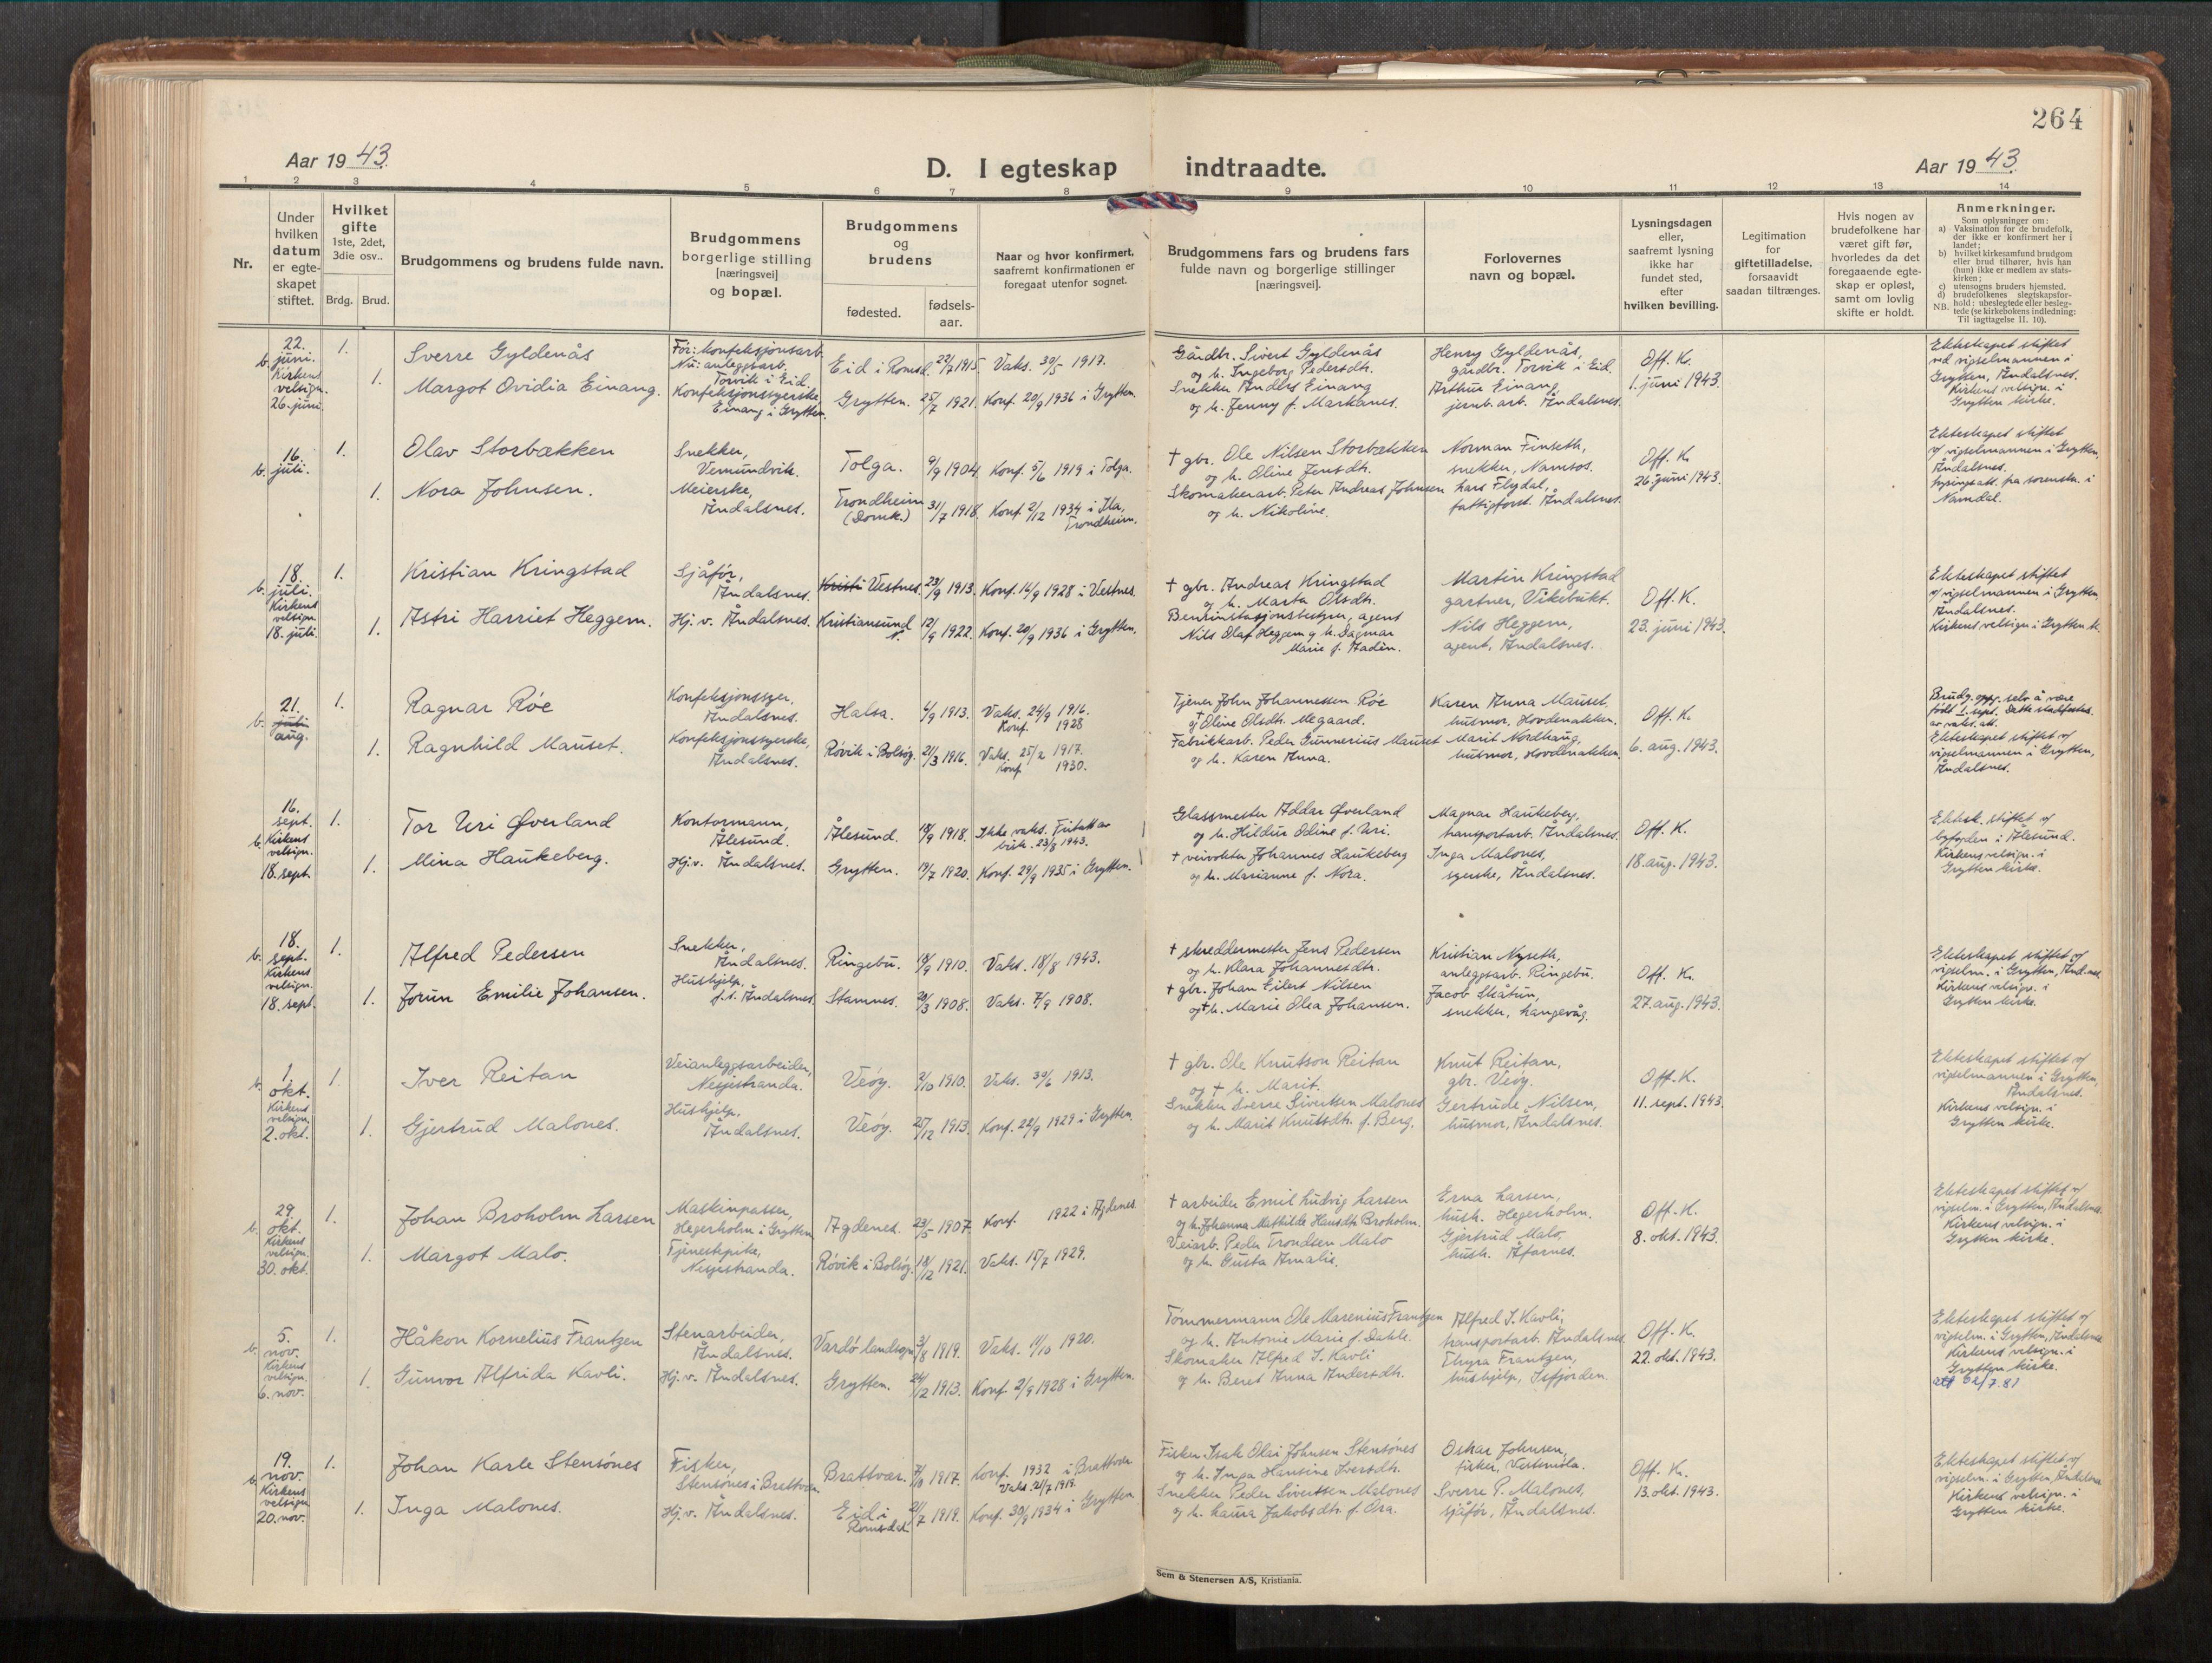 264
Aar 1943.
D. I egteskap indtraadte.
Aar 1943.
1 2 3 4 5 6 7 8 9 10 11 12 13 14
Nr.
Under
hvilken
datum
er egte-
skapet
stiftet.
Hvilket
gifte
1ste, 2det,
3die osv..
Brdg. Brud.
Brudgommens og brudens fulde navn.
Brudgommens
borgerlige stilling
[næringsvei]
og bopæl.
Brudgommens
og
brudens
fødested.
fødsels-
aar.
Naar og hvor konfirmert,
saafremt konfirmationen er
foregaat utenfor sognet.
Brudgommens fars og brudens fars
fulde navn og borgerlige stillinger
[næringsvei].
Forlovernes
navn og bopæl.
Lysningsdagen
eller,
saafremt lysning
ikke har
fundet sted,
efter
hvilken bevilling.
Legitimation
for
giftetilladelse,
forsaavidt
saadan tiltrænges.
Hvis nogen av
brudefolkene har
været gift før,
hvorledes da det
foregaaende egte-
skap er opløst,
samt om lovlig
skifte er holdt.
Anmerkninger.
Som oplysninger om:
a) Vaksination for de brudefolk,
der ikke er konfirmert her i
landet;
b) hvilket kirkesamfund brudgom
eller brud tilhører, hvis han
(hun) ikke er medlem av stats-
kirken;
c) utensogns bruders hjemsted.
d) brudefolkenes slegtskapsfor-
hold: ubeslegtede eller besleg-
NB. tede (se kirkebokens indledning:
Til iagttagelse II. 10).
b. 22. juni.
Kirkens
velsign.
26. juni.
1.
1.
Sverre Gyldenås
Margot Ovidia Einang.
Før: konfeksjonsarb.
Nu: anleggsarb.
Torvik i Eid.
Konfeksjonssyerske,
Einang i Grytten.
Eid i Romsd. 22/7 1915. Vaks. 30/5 1917.
Grytten. 25/7 1921. Konf. 20/9 1936 i Grytten.
Gårdbr. Sivert Gyldenås
og h. Ingeborg Pedersdtr.
Snekker Anders Einang
og h. Jenny f. Markanes.
Henry Gyldenås,
gårdbr. Torvik i Eid.
Arthur Einang,
jernb.arb. Åndalsnes.
Off. K.
1. juni 1943.
Ekteskapet stiftet
ved vigselmannen i
Grytten, Åndalsnes.
Kirkens velsign. i
Grytten kirke.
b. 16. juli.
1.
1.
Olav Storbækken
Nora Johnsen.
Snekker,
Vemundvik.
Meierske,
Åndalsnes.
Tolga. 9/9 1904. Konf. 5/6 1919 i Tolga.
Trondheim
(Domk.) 31/7 1918. Konf. 2/12 1934 i Ila,
Trondheim.
† gbr. Ole Nilsen Storbækken
og h. Oline Jensdtr.
Skomakerarb. Peter Andreas Johnsen
og h. Nikoline.
Norman Finseth,
snekker, Namsos.
Lars Flydal,
fattigforst. Åndalsnes.
Off. K.
26. juni 1943.
Ekteskapet stiftet
v/ vigselmannen i Grytten,
Åndalsnes.
Lysingsatt. fra sorenskr. i
Namdal.
b. 18. juli.
Kirkens
velsign.
18. juli.
1.
1.
Kristian Kringstad
Astri Harriet Heggem.
Sjåfør,
Åndalsnes.
Hj. v. Åndalsnes.
Kristi Vestnes. 23/9 1913. Konf. 16/9 1928 i Vestnes.
Kristiansund N. 12/9 1922. Konf. 20/9 1936 i Grytten.
† gbr. Andreas Kringstad
og h. Marta Olsdtr.
Bensinstasjonsbestyrer, agent
Nils Olaf Heggem og h. Dagmar
Marie f. Aadin.
Martin Kringstad
gartner, Vikebukt.
Nils Heggem,
agent, Åndalsnes.
Off. K.
23. juni 1943.
Ekteskapet stiftet
v/ vigselmannen i Grytten,
Åndalsnes.
Kirkens velsign i Grytten k.
b. 21. juli aug.
1.
1.
Ragnar Røe
Ragnhild Mauset.
Konfeksjonssyer,
Åndalsnes.
Konfeksjonssyerske,
Åndalsnes.
Halsa. 4/9 1913. Vaks. 24/9 1916.
Konf. 1928
Røvik i Bolsøy. 21/3 1916. Vaks. 25/2 1917.
Konf 1930.
Tjener John Johannessen Røe
og † Oline Olsdtr. Megaard.
Fabrikkarb. Peder Gunnerius Mauset
og h. Karen Anna.
Karen Anna Mauset.
husmor, Hovdenakken.
Marit Nordhaug,
husmor, Hovdenakken.
Off. K.
6. aug. 1943.
Brudg. oppg. selv å være
født 1. sept. Dette stadfestes
av vaks. att.
Ekteskapet stiftet v/
vigselmannen i Grytten,
Åndalsnes.
b. 16. sept.
Kirkens
velsign.
18. sept.
1.
1.
Tor Uri Øverland
Mina Haukeberg.
Kontormann,
Ålesund.
Hj.v. Åndalsnes.
Ålesund. 18/9 1918. Ikke vaks. Fritatt av
bisk. 23/8 1943.
Grytten. 19/7 1920. Konf. 29/9 1935 i Grytten.
Glassmester Addar Øverland
og h. Hildur Odine f. Uri.
† veivokter Johannes Haukeberg
og h. Marianne f. Nora.
Magnar Haukeberg,
transportarb. Åndalsnes.
Inga Malones,
syerske, Åndalsnes.
Off. K.
18. aug. 1943.
Ektesk. stiftet v/
byfogden i Ålesund.
Kirkens velsign. i
Grytten kirke.
b. 18. sept.
Kirkens
velsign.
18. sept.
1.
1.
Alfred Pedersen
Jorun Emilie Johansen.
Snekker,
Åndalsnes.
Hushjelp,
f.t. Åndalsnes.
Ringebu. 19/9 1910. Vaks. 18/8 1943.
Stamnes. 20/3 1908. Vaks. 7/9 1908.
† skreddermester Jens Pedersen
og h. Klara Johannesdtr.
† gbr. Johan Eilert Nilsen
og † h. Marie Olea Johansen.
Kristian Nyseth,
anleggsarb. Ringebu.
Jacob Skåtun,
snekker, Langevåg.
Off. K.
27. aug. 1943.
Ekteskapet stiftet v/
vigselm. i Grytten, Ånd.nes
Kirkens velsign. i
Grytten kirke.
b. 1. okt.
Kirkens
velsign.
2. okt.
1.
1.
Iver Reitan
Gjertrud Malones.
Veianleggsarbeider,
Nesjestranda.
Hushjelp,
Åndalsnes.
Veøy. 2/10 1910. Vaks. 30/6 1913.
Veøy. 25/12 1913. Konf. 22/9 1929 i Grytten.
† gbr. Ole Knutson Reitan
og † h. Marit.
Snekker Sverre Sivertsen Malones
og h. Marit Knutsdtr. f. Berg.
Knut Reitan,
gbr. Veøy.
Gertrude Nilsen,
husmor, Åndalsnes.
Off. K.
11. sept. 1943.
Ekteskapet stiftet v/
vigselmannen i Grytten,
Åndalsnes.
Kirkens velsign. i
Grytten kirke.
b. 29. okt.
Kirkens
velsign.
30. okt.
1.
1.
Johan Broholm Larsen
Margot Malo.
Maskinpasser,
Hegerholm i Grytten
Tjenestepike,
Nesjestranda.
Agdenes. 23/5 1907. Konf. 1922 i Agdenes.
Røvik i Bolsøy. 18/12 1921. Vaks. 15/7 1929.
† arbeider Emil Ludvig Larsen
og h. Johanna Mathilde Hansdtr. Broholm.
Veiarb. Peder Trondsen Malo
og h. Gusta Amalie.
Erna Larsen,
hustr. Hegerholm.
Gjertrud Malo,
hustr. Åfarnes.
Off. K.
8. okt. 1943.
Ekteskapet stiftet v/
vigselm. i Grytten, Åndalsnes.
Kirkens velsign. i
Grytten kirke.
b. 5. nov.
Kirkens
velsign.
6. nov.
1.
1.
Håkon Kornelius Frantzen
Gunvor Alfrida Kavli.
Stenarbeider,
Åndalsnes.
Hj.v. Åndalsnes.
Vardø landsogn 3/8 1919. Vaks. 11/10 1920.
Grytten. 24/12 1913. Konf. 2/9 1928 i Grytten.
Tømmermann Ole Marenius Frantzen
og h. Antonie Marie f. Dahle.
Skomaker Alfred I. Kavli
og h. Beret Anna Andersdtr.
Alfred I. Kavli,
transportarb. Åndalsnes.
Thyra Frantzen,
hushjelp, Isfjorden.
Off. K.
22. okt. 1943.
Ekteskapet stiftet v/
vigselm. i Grytten, Åndalsnes
Kirkens velsign. i
Grytten kirke.
att 7.81
b. 19. nov.
Kirkens
velsign
20. nov.
1.
1.
Johan Karle Stensønes
Inga Malones.
Fisker,
Stensønes i Brattvær.
Hj.v. Åndalsnes.
Brattvær. 1917. Konf. 1932 i Brattvær
Vaks. 21/7 1919.
Eid i
Romsdal 21/7 1919. Konf. 30/9 1934 i Grytten
Fisker Isak Olai Johnsen Stensønes
og h. Inga Hansine Iversdtr.
Snekker Peder Sivertsen Malones
og h. Laura Jakobsdtr. f. Øra.
Oskar Johnsen,
fisker,
Sverre P. Malones,
sjåfør, Åndalsnes.
Off. K.
13. okt. 1943.
Ekteskapet stiftet v/
vigselm. i Grytten, Åndalsnes
Kirkens velsign. i
Grytten kirke.
Sem & Stenersen A/S, Kristiania.